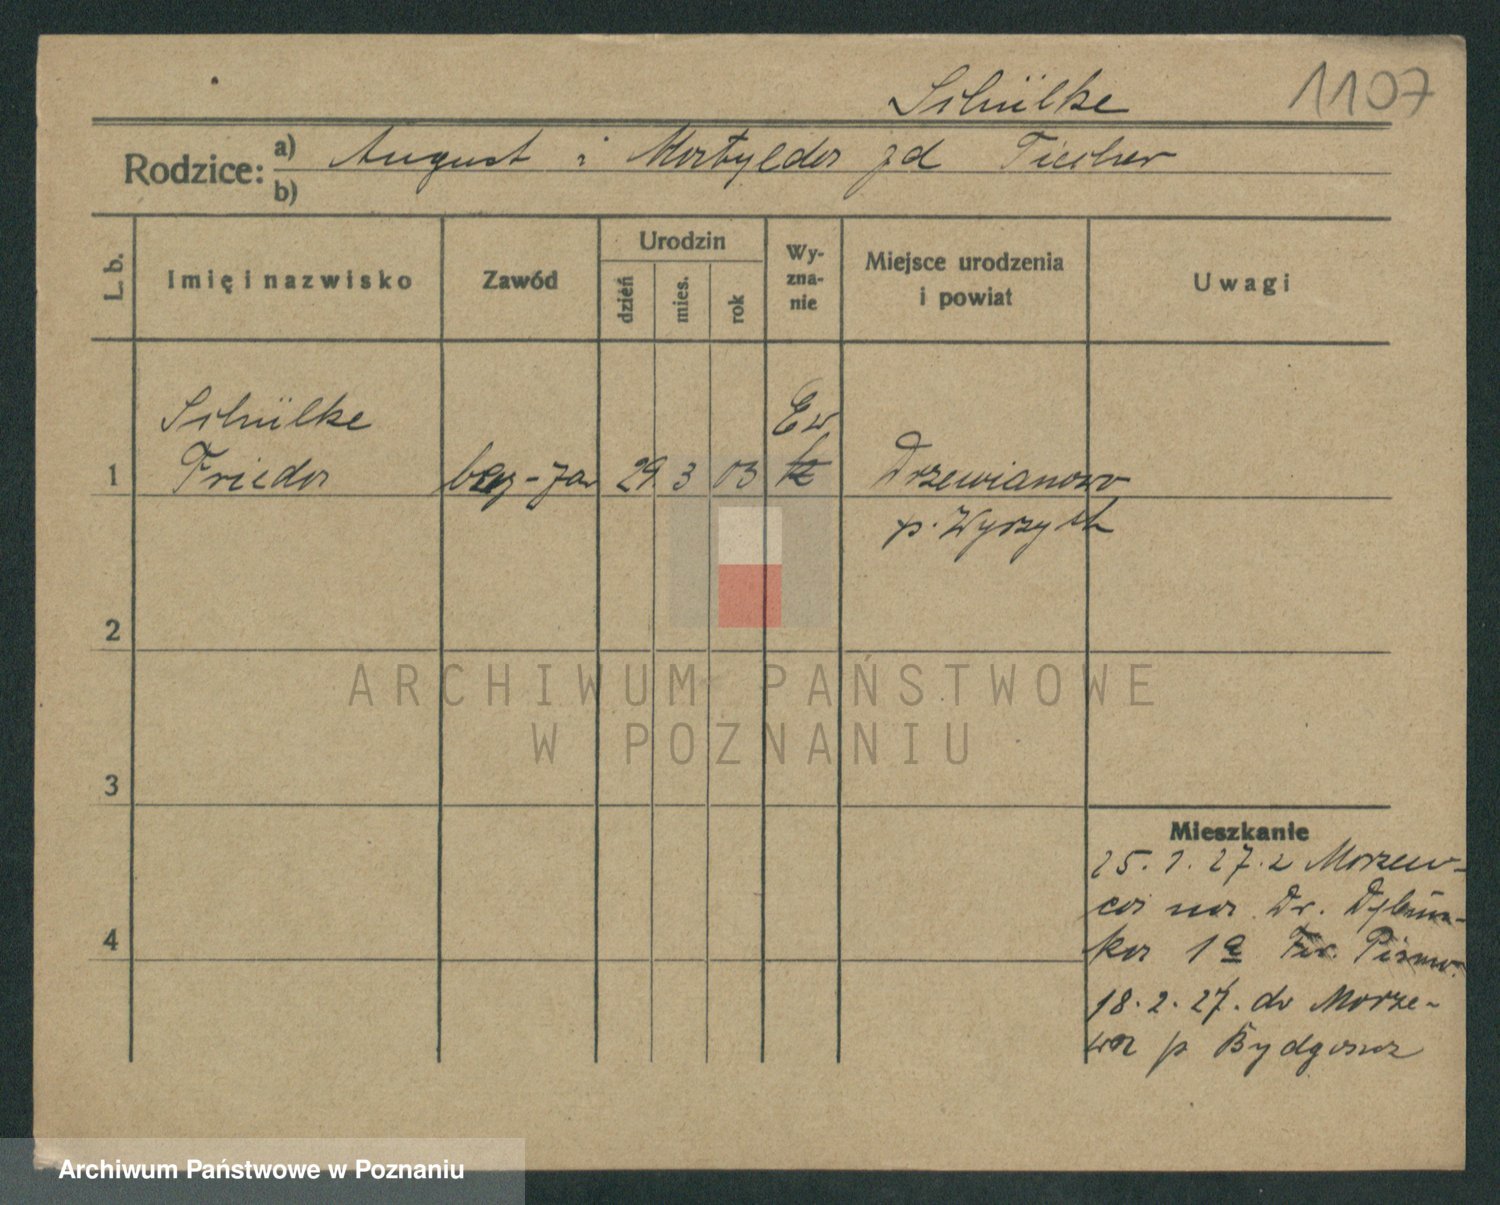 1107
Schülke
Rodzice:
a) August i Matylda zd Tiecher
b)
L. b.
Imię i nazwisko
Zawód
Urodzin
dzień
mies.
rok
Wy-
zna-
nie
Miejsce urodzenia
i powiat
Uwagi
Schülke
Ew
1 Frieda bez-zaw 29 3 03 Drzewianowo
p. Wyrzysk
2
3
4
Mieszkanie
25. 1. 27. z Morzew-
ca na Dr.
ka 1
18. 2. 27. do Morze-
wca p Bydgoszcz
ARCHIWUM PAŃSTWOWE
W POZNANIU
Archiwum Państwowe w Poznaniu